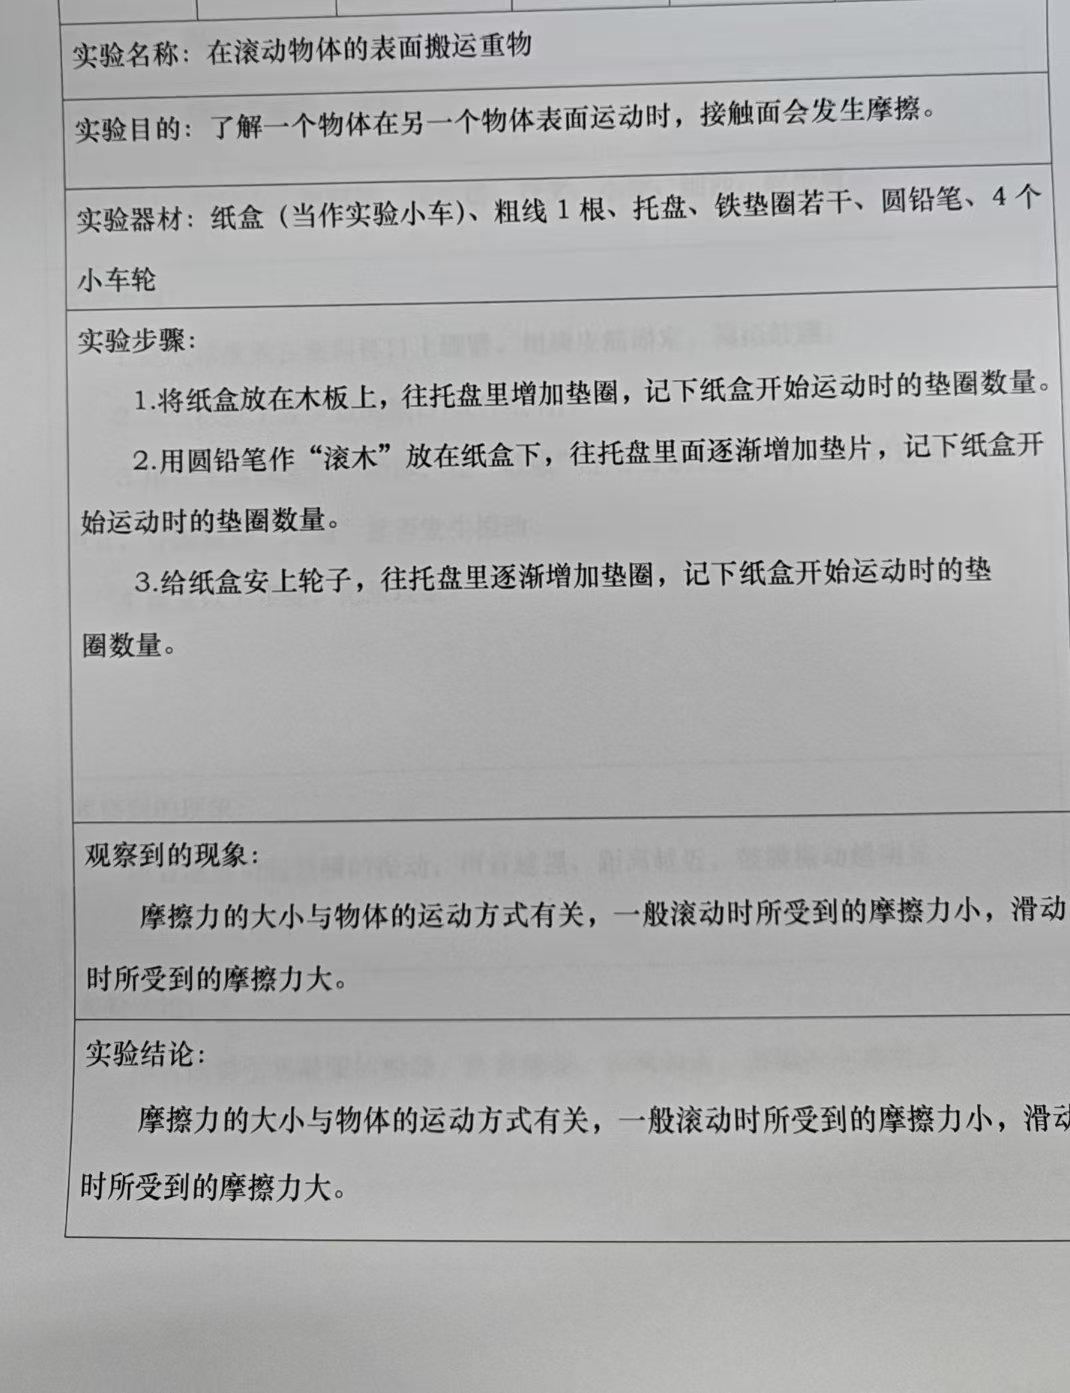 实验名称：在滚动物体的表面搬运重物
实验目的：了解一个物体在另一个物体表面运动时，接触面会发生摩擦。
实验器材：纸盒（当作实验小车）、粗线 1 根、托盘、铁垫圈若干、圆铅笔、4 个
小车轮
实验步骤：
1.将纸盒放在木板上，往托盘里增加垫圈，记下纸盒开始运动时的垫圈数量。
2.用圆铅笔作“滚木”放在纸盒下，往托盘里面逐渐增加垫片，记下纸盒开
始运动时的垫圈数量。
3.给纸盒安上轮子，往托盘里逐渐增加垫圈，记下纸盒开始运动时的垫
圈数量。
观察到的现象：
摩擦力的大小与物体的运动方式有关，一般滚动时所受到的摩擦力小，滑动
时所受到的摩擦力大。
实验结论：
摩擦力的大小与物体的运动方式有关，一般滚动时所受到的摩擦力小，滑动
时所受到的摩擦力大。